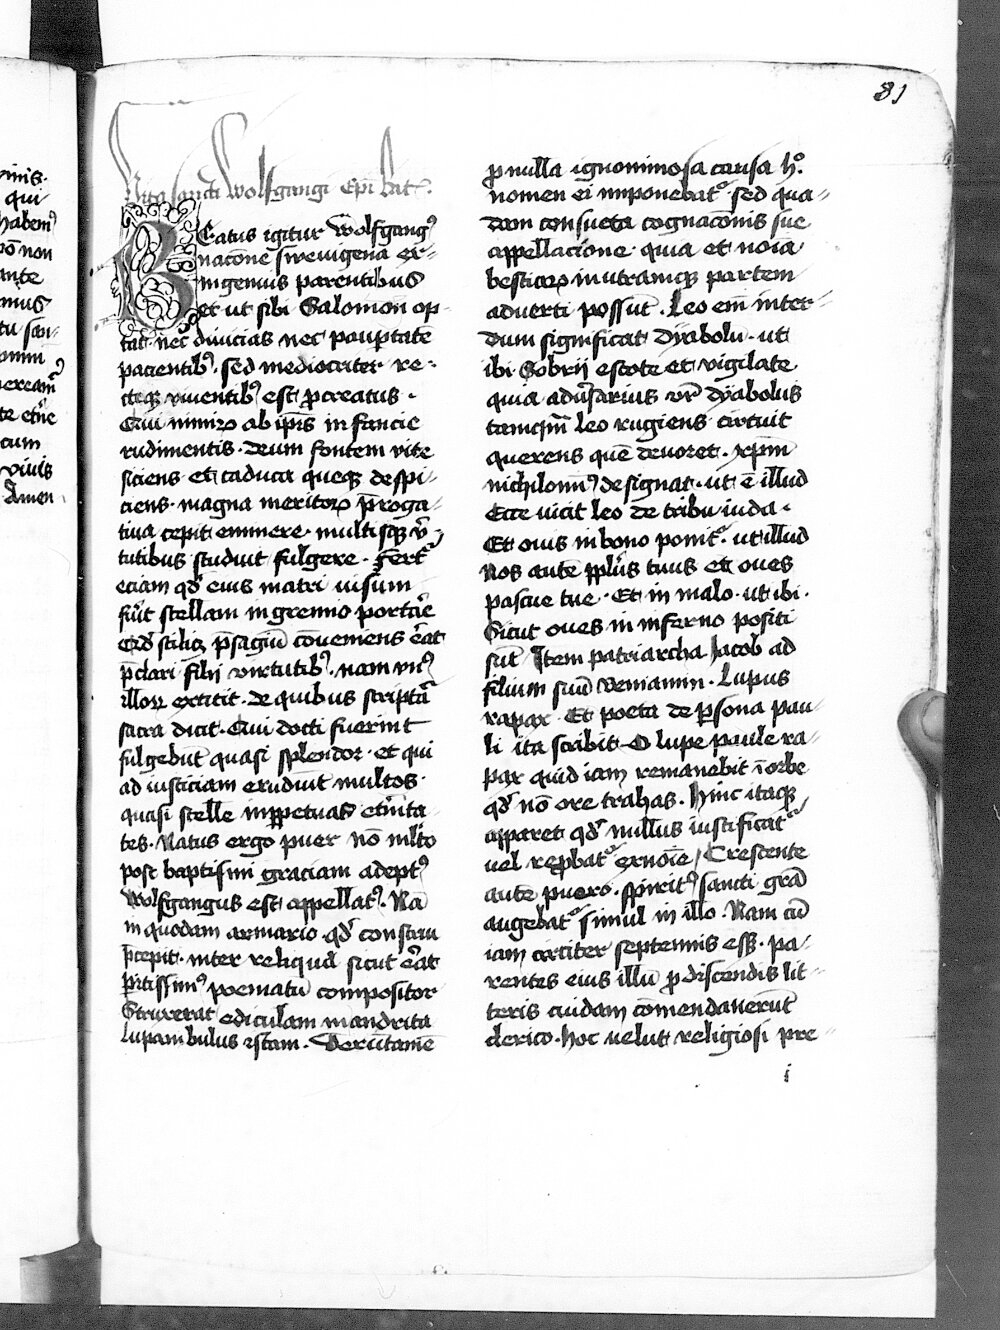 81
Vita sancti wolfgangi Epi Rat.
BEatus igitur Wolfgang᾿
nacōne swevigena ex-
ingenuis parentibus
et ut sibi Salomon op-
tat. nec diuicias nec paup̄tatē
pacientib᾿. sed mediocriter re-
cteqꝫ viventib᾿ est ꝓcreatus.
Qui nimirꝝ ab ip̄is infancie
rudimentis. deum fontem vite
siciens et caduca queqꝫ despi-
ciens. magna meritoꝝ p̄roga-
tiua cepit eminere. multisqꝫ v̄-
tutibus studuit fulgere. Fert᾿
eciam qd̄ eius matri uisum
fūit stellam in gremio portāe
Qd̄ scilicꝫ p̄sagiū cōueniens erat
p̄clari filii virtutib᾿. nam vn᾿
illoꝝ extitit. de quibus scriptā
sacra dicit. Qui docti fuerint
fulgebūt quasi splendor. et qui
ad iusticiam erudiūt multos.
quasi stelle in ꝑpetuas et̄nita-
tes. Natus ergo puer nō mlto
post baptismi graciam adept᾿
Wolfgangus est appellat᾿. Nā
in quodam armario. qd̄ constru
p̄cepit. inter reliqua sicut erat
ꝑitissim᾿ poematū compositor
Struxerat ediculam mandrita
lupambulus istam. Verūtamē
ꝓ nulla ignominiosa causa h°
nomen ei imponebat᾿. sed qua-
dam consueta cognacōnis sue
appellacione. quia et noīa
bestiaꝝ in utramqꝫ partem
aduerti possūt. Leo em̄ inter-
dum significat dyabolū. ut
ibi Sobrij estote et vigilate
quia adūsarius vr̄ dyabolus
tamqm̄ leo rugiens circuit
querens quē deuoret. xp̄m
nichilomin᾿ designat. ut ē illud
Ecce uicit leo de tribu iuda.
Et ouis in bono ponit᾿. ut illud
Nos autē pplūs tuus et oues
pascue tue. Et in malo. ut ibi.
Sicut oues in inferno positi
sūt Item patriarcha Jacob ad
filium suū Beniamin. Lupus
rapax. Et poeta de ꝑsona pau-
li ita scribit O lupe paule ra-
pax quid iam remanebit ī orbe
qd̄ nō ore trahas. Hinc itaqꝫ
apparet qd̄ nullus iustificat᾿
uel reꝓbat᾿ ex noīe. Crescente
autē puero. spirit᾿ sancti grā
augebat᾿ simul in illo. Nam cū
iam circiter septennis eēt. pa-
rentes eius illū ꝓ discendis lit-
teris cuidam cōmendauerūt
clerico. hoc uelut religiosi pre-
i